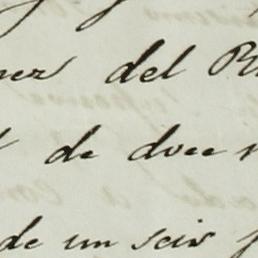 del
de doce
de un seis